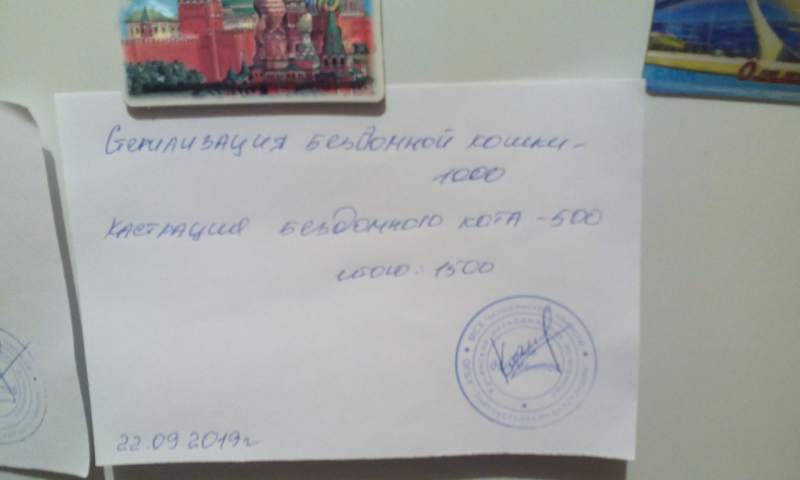 Стерилизация бездомной кошки -
1000
Кастрация бездомного кота - 500
итого: 1500
22.09.2019г